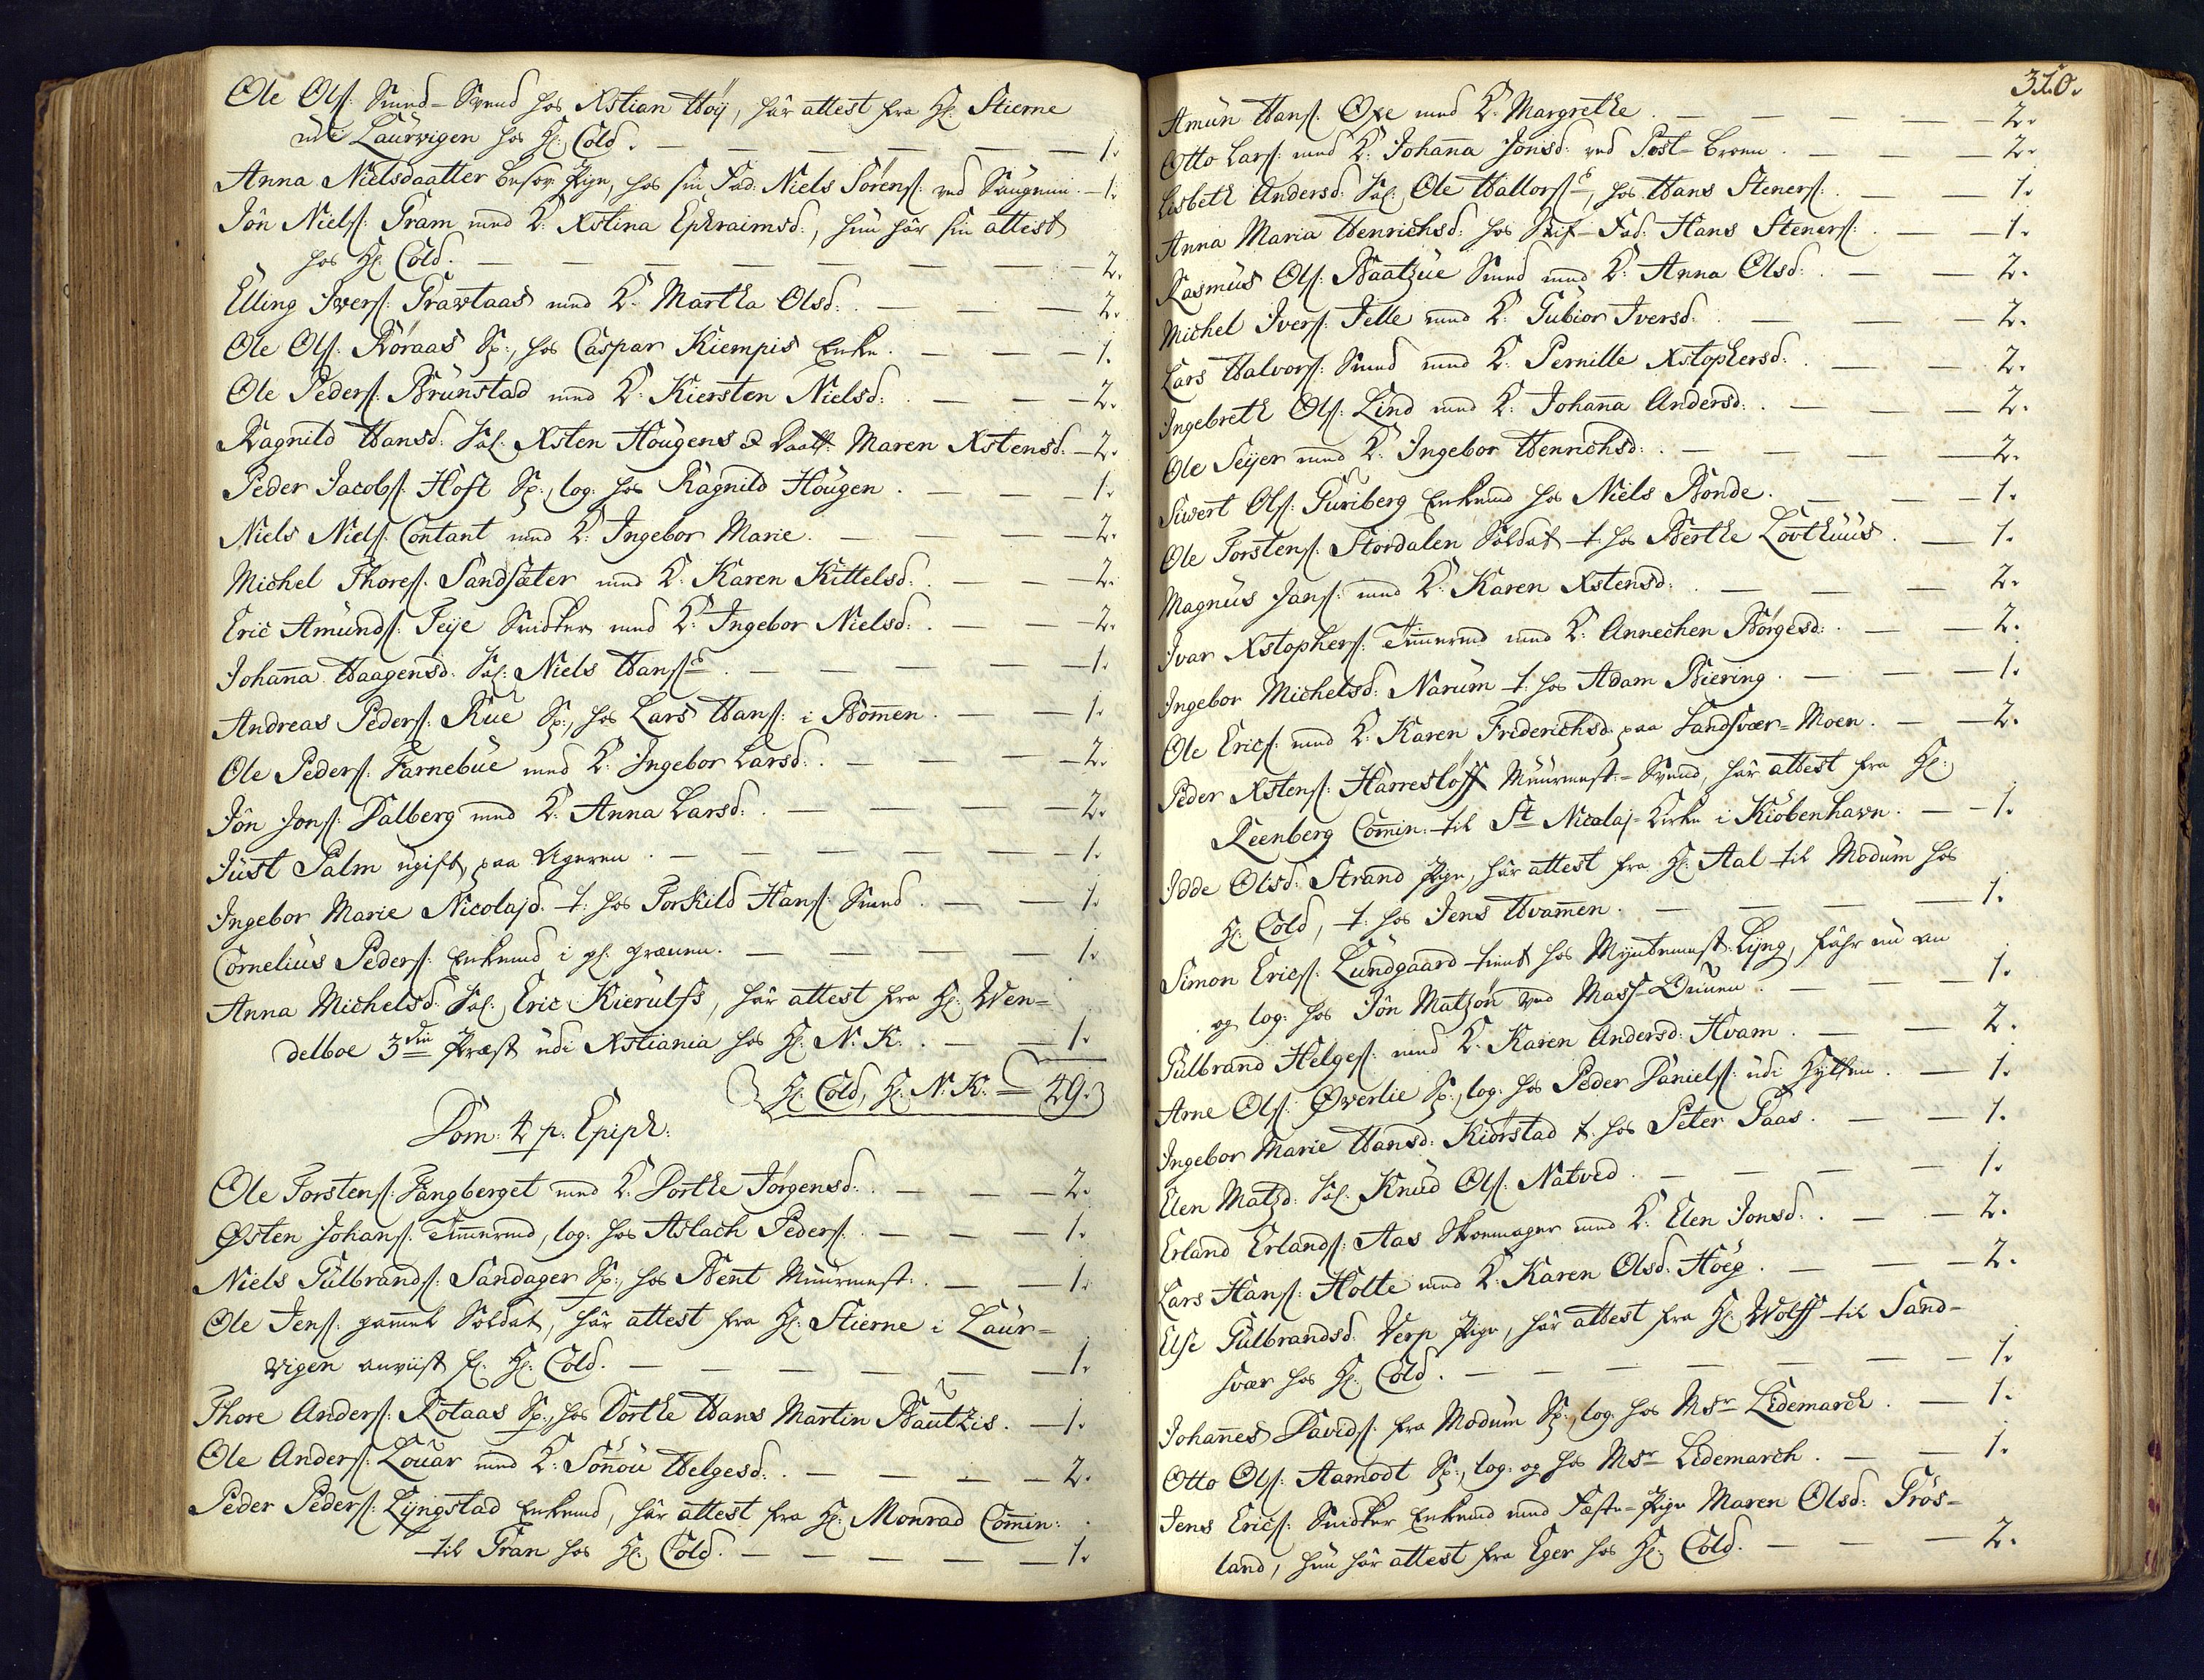 Ole Ols: Smed-Svend hos Xstian Høÿ, har attest fra Hr: Stierne
udi Laurvigen hos Hr: Cold. — 1.
Anna Nielsdaatter besov: Pige, hos sin Fad: Niels Sörens: ved Saugene. — 1.
Jôn Niels: Fram med K: Xstina Ephraimsd:, hun har sin attest
hos Hr: Cold. — 2.
Elling Ivers: Travtaas med K: Martha Olsd: — 2.
Ole Ols: Röraas Sp:, hos Caspar Kiempis Enke. — 1.
Ole Peders: Brunstad med K: Kiersten Nielsd: — 2.
Ragnild Hansd: Sal: Xsten Hougens & Daatt: Maren Xstensd: — 2.
Peder Jacobs: Hoft Sp:, log: hos Ragnild Hougen. — 1.
Niels Niels: Contant med K: Ingebor Marie. — 2.
Michel Thores: Sandsæter med K: Karen Kittelsd: — 2.
Eric Amunds: Teÿe Snidker med K: Ingebor Nielsd: — 2.
Johanna Haagensd: Sal: Niels Hanss — 1.
Andreas Peders: Rue Sp:, hos Lars Hans: i Bommen. — 1.
Ole Peders: Farnebue med K: Ingebor Larsd: — 2.
Jôn Jons: Dalberg med K: Anna Larsd: — 2.
Just Palm ugift paa Ageren. — 1.
Ingebor Marie Nicolajd: t: hos Torkild Hans: Smed. — 1.
Cornelius Peders: Enkemd i gl: — 1.
Anna Michelsd: Sal: Eric Kierulfs, har attest fra Hr: Wen-
delboe 3die Præst udi Xstiania hos Hr: N. K. — 1.
Hr: Cold, Hr: N. K. — 49.
Dom: 4 p. Epiph:
Ole Torstens: Fangberget med K: Dorthe Jörgensd: — 2.
Østen Johans: Timermd, log: hos Aslach Peders: — 1.
Niels Gulbrands: Sandager Sp:, hos Bent Muurmest: — 1.
Ole Jens: gammel Soldat, har attest fra Hr: Stierne i Laur-
vigen anviist f: Hr: Cold. — 1.
Thore Anders: Rotaas Sp:, hos Dorthe Hans Martin Bautzis. — 1.
Ole Anders: Louar med K: Sönnöu Helgesd: — 2.
Peder Peders: Lÿngstad Enkemd, har attest fra Hr: Monrad Commin:
til Gran hos Hr: Cold. — 1.
310.
Amun Hans: Oxe med K: Margrethe — 2.
Otto Lars: med K: Johanna Jonsd: ved Post-broen. — 2.
Lisbeth Andersd: Sal: Ole Hallorss, hos Hans Steners: — 1.
Anna Maria Henrichsd: hos Stif-Fad: Hans Steners: — 1.
Rasmus Ols: Baatzue Smed med K: Anna Olsd: — 2.
Michel Ivers: Jelle med K: Gubior Iversd: — 2.
Lars Halvors: Smed med K: Pernille Xstophersd: — 2.
Ingebreth Ols: Lind med K: Johanna Andersd: — 2.
Ole Seÿer med K: Ingebor Henrichsd: — 2.
Siwert Ols: Guriberg Enkemd hos Niels Bonde. — 1.
Ole Torstens: Stordalen Soldat t: hos Berthe Lövthuus. — 1.
Magnus Jans: med K: Karen Xstensd: — 2.
Ivar Xstophers: Timermd med K: Annechen Börgesd: — 2.
Ingebor Michelsd: Narum t: hos Adam Biering. — 1.
Ole Erics: med K: Karen Friderichsd: paa Sandsvær-Moen. — 2.
Peder Xstens: Harreslöff Muurmest-Svend, har attest fra Hr:
Reenberg Comin: til St Nicolaj-Kirke i Kiöbenhavn. — 1.
Idde Olsd: Strand Pige, har attest fra Hr: Aal til Modum hos
Hr: Cold, t: hos Jens Hvammen. — 1.
Simon Erics: Lundgaard tient hos Myntemest: Lÿng, fahr nu an
og log: hos Jôn Matzôn ved — 1.
Gulbrand Helges: med K: Karen Andersd: Hvam. — 2.
Arne Ols: Øverlie Sp:, log: hos Peder Daniels: udi Hytten. — 1.
Ingebor Marie Hansd: Kiörstad t: hos Peter Paas. — 1.
Elen Matzd: Sal: Knud Ols: Natved. — 1.
Erland Erlands: Aas Skoemager med K: Elen Jonsd: — 2.
Lars Hans: Holte med K: Karen Olsd: Höeg. — 2.
Else Gulbrandsd: Verp Pige, har attest fra Hr: Wolff til Sand-
svær hos Hr: Cold. — 1.
Johannes Davids: fra Modum Sp:, log: hos Msr Lidemarch. — 1.
Otto Ols: Aamodt Sp:, log: og hos Msr Lidemarch. — 1.
Jens Erics: Snidker Enkemd med Fæste-Pige Maren Olsd: Frös-
land, hun har attest fra Eger hos Hr: Cold. — 2.